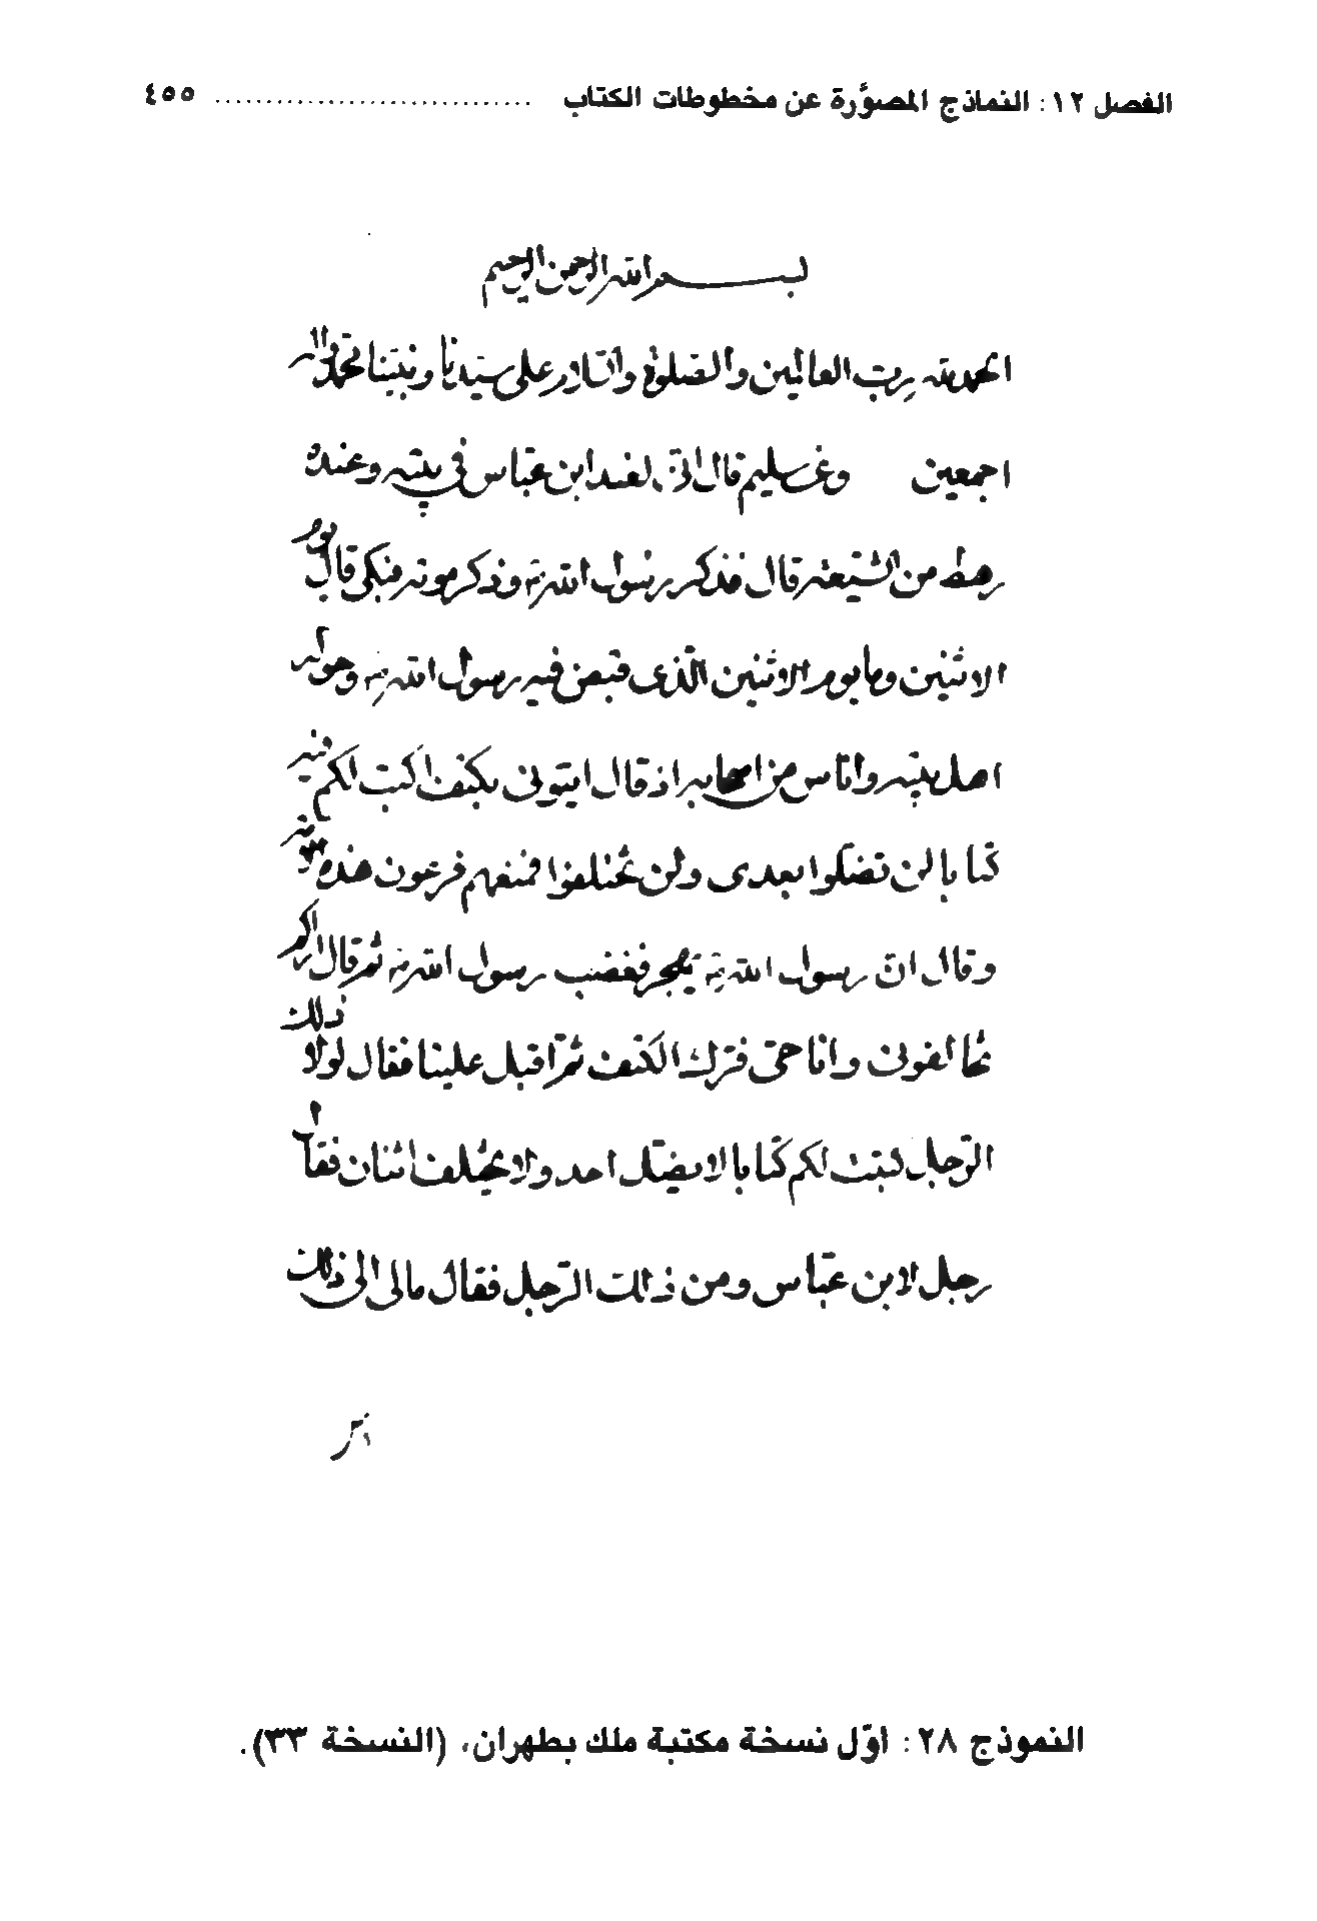 الفصل ١٢: النماذج المصوَّرة عن مخطوطات الكتاب .............................. ٤٥٥
بسم الله الرحمن الرحيم
الحمد لله رب العالمين والصلوة والسلام على سيدنا ونبينا محمد واله
اجمعين وعن سليم قال انى لعند ابن عباس فى بيته وعنده
رهط من الشيعة قال فذكر رسول الله ص وذكر موته فبكى قال يوم
الاثنين وما يوم الاثنين الذى قبض فيه رسول الله ص وحوله
اهل بيته واناس من اصحابه اذ قال ايتونى بكتف اكتب لكم فيه
كتابا لن تضلوا بعدى ولن تختلفوا فمنعهم فرعون هذه
وقال ان رسول الله ص يهجر فغضب رسول الله ص ثم قال اراكم
تخالفونى وانا حى فترك الكتف ثم اقبل علينا فقال لولا ذلك
الرجل لكتبت لكم كتابا لا يضل احد ولا يختلف اثنان فقال
رجل لابن عباس ومن ذلك الرجل فقال مالى الى ذلك
النموذج ٢٨: اوّل نسخة مكتبة ملك بطهران، (النسخة ٣٣).